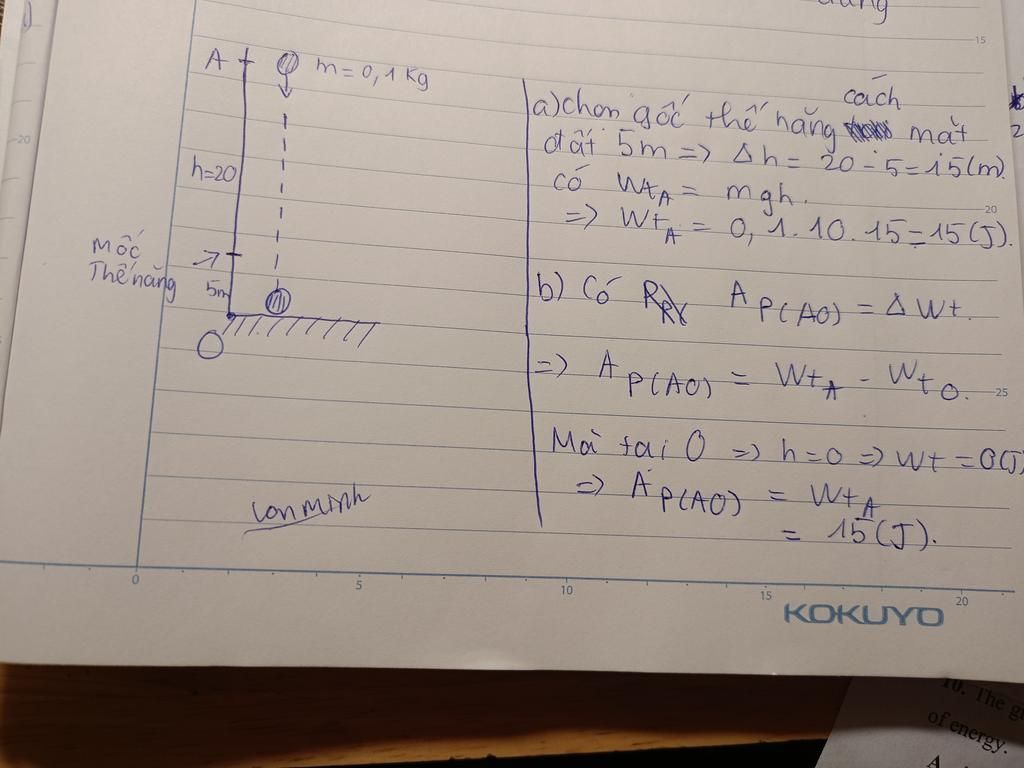 15
A
m = 0,1 kg
h=20
Mốc
Thế năng
5m
O
cách
a) chọn gốc thế năng mặt
đất 5m => Δh = 20 - 5 = 15(m).
có WtA = mgh.
=> WtA = 0,1.10.15 = 15(J).
b) Có A P(AO) = ΔWt.
=> A P(AO) = WtA - WtO.
Mà tại O => h=0 => Wt = 0(J)
=> A P(AO) = WtA
= 15(J).
conminh
20
20
25
0
5
10
15
20
KOKUYO
10. The
of energy.
A